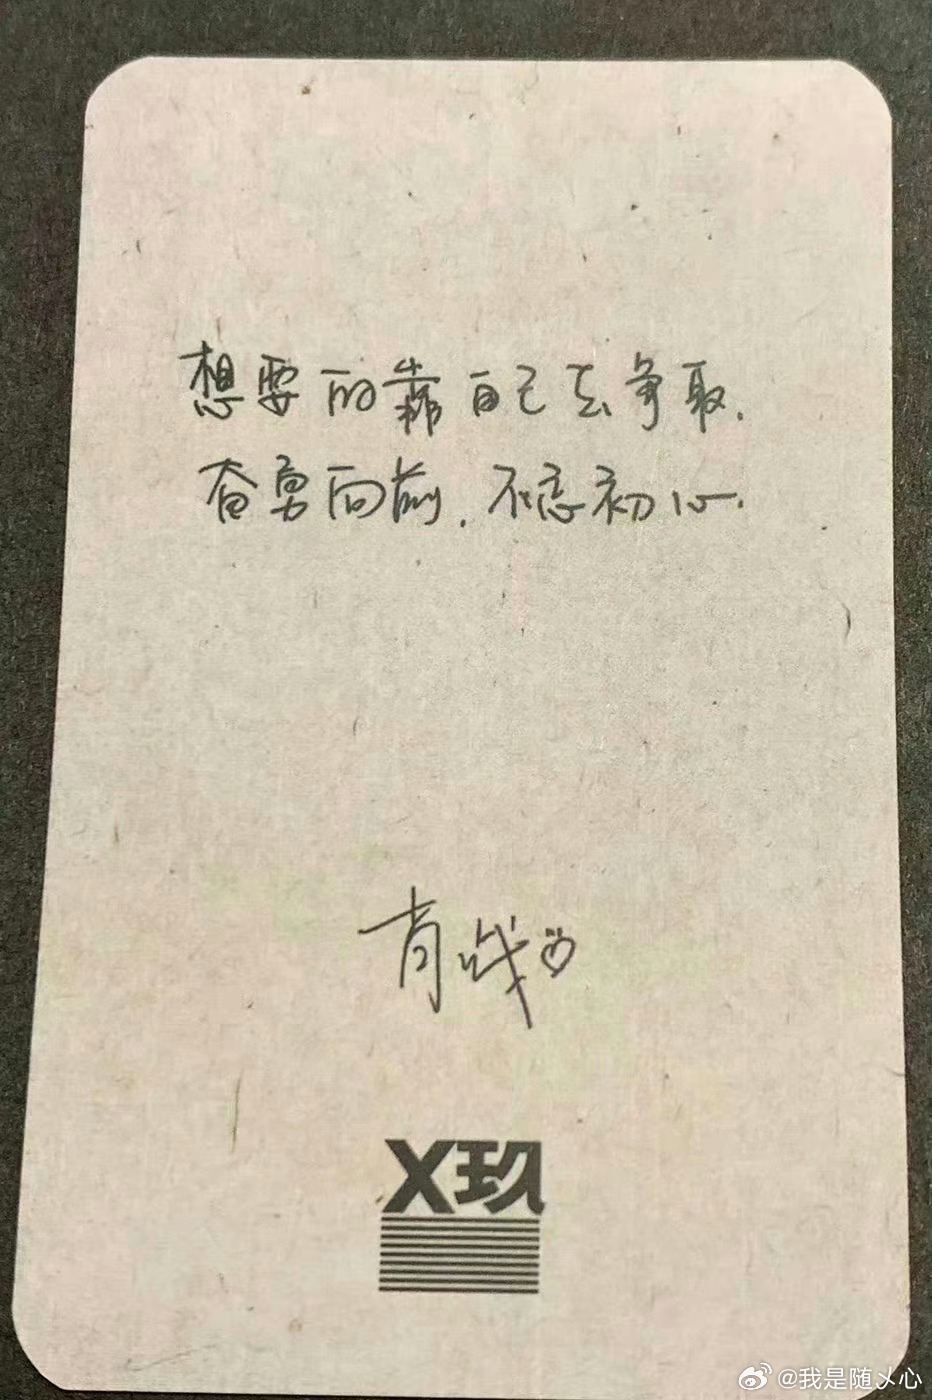 想要的靠自己去争取.
奋勇向前.不忘初心.
肖战
X玖
@我是随乄心